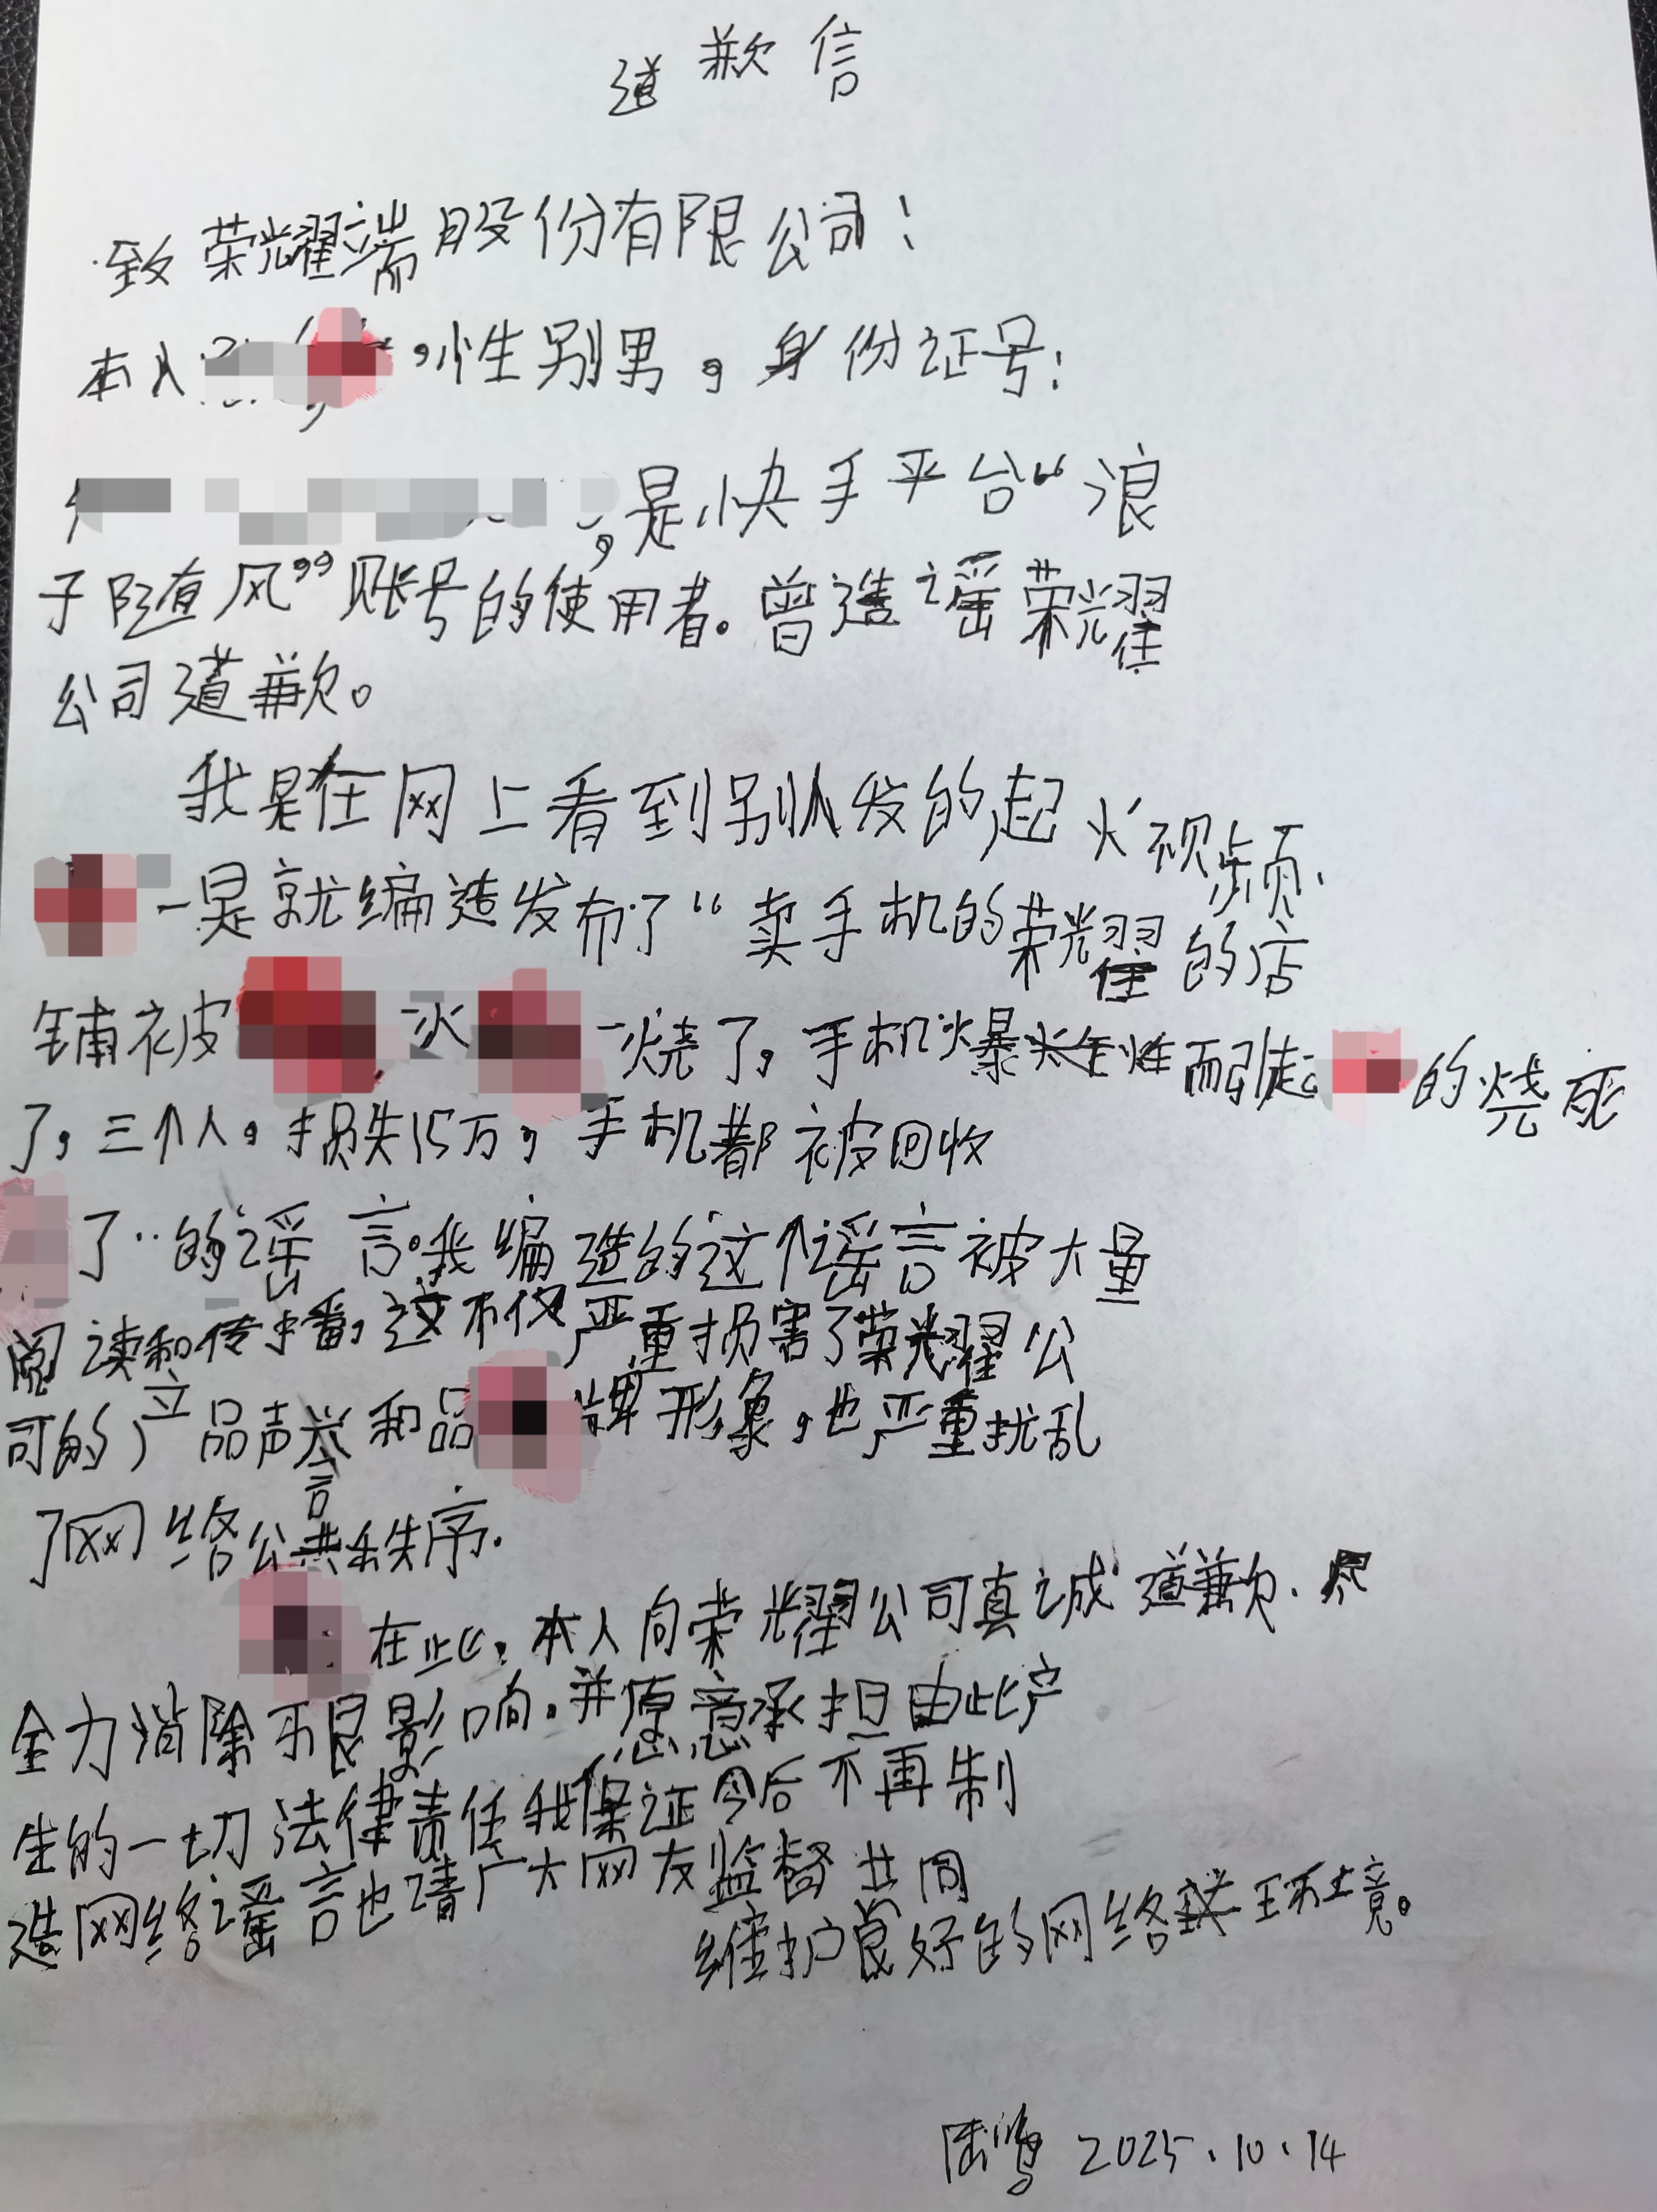 道歉信
致荣耀端股份有限公司：
本人，性别男，身份证号：
，是快手平台“浪
子随风”账号的使用者。曾造谣荣耀
公司道歉。
我是在网上看到别人发的起火视频.
是就编造发布了“卖手机的荣耀的店
铺被火烧了，手机爆炸性而引起的烧死
了，三个人。损失15万，手机都被回收
了”的谣言。我编造的这个谣言被大量
阅读和传播，这不仅严重损害了荣耀公
司的产品声誉和品牌形象，也严重扰乱
了网络公共秩序.
在此，本人向荣耀公司真诚道歉.尽
全力消除不良影响.并愿意承担由此产
生的一切法律责任我保证今后不再制
造网络谣言也请广大网友监督共同
维护良好的网络环境。
2025.10.14